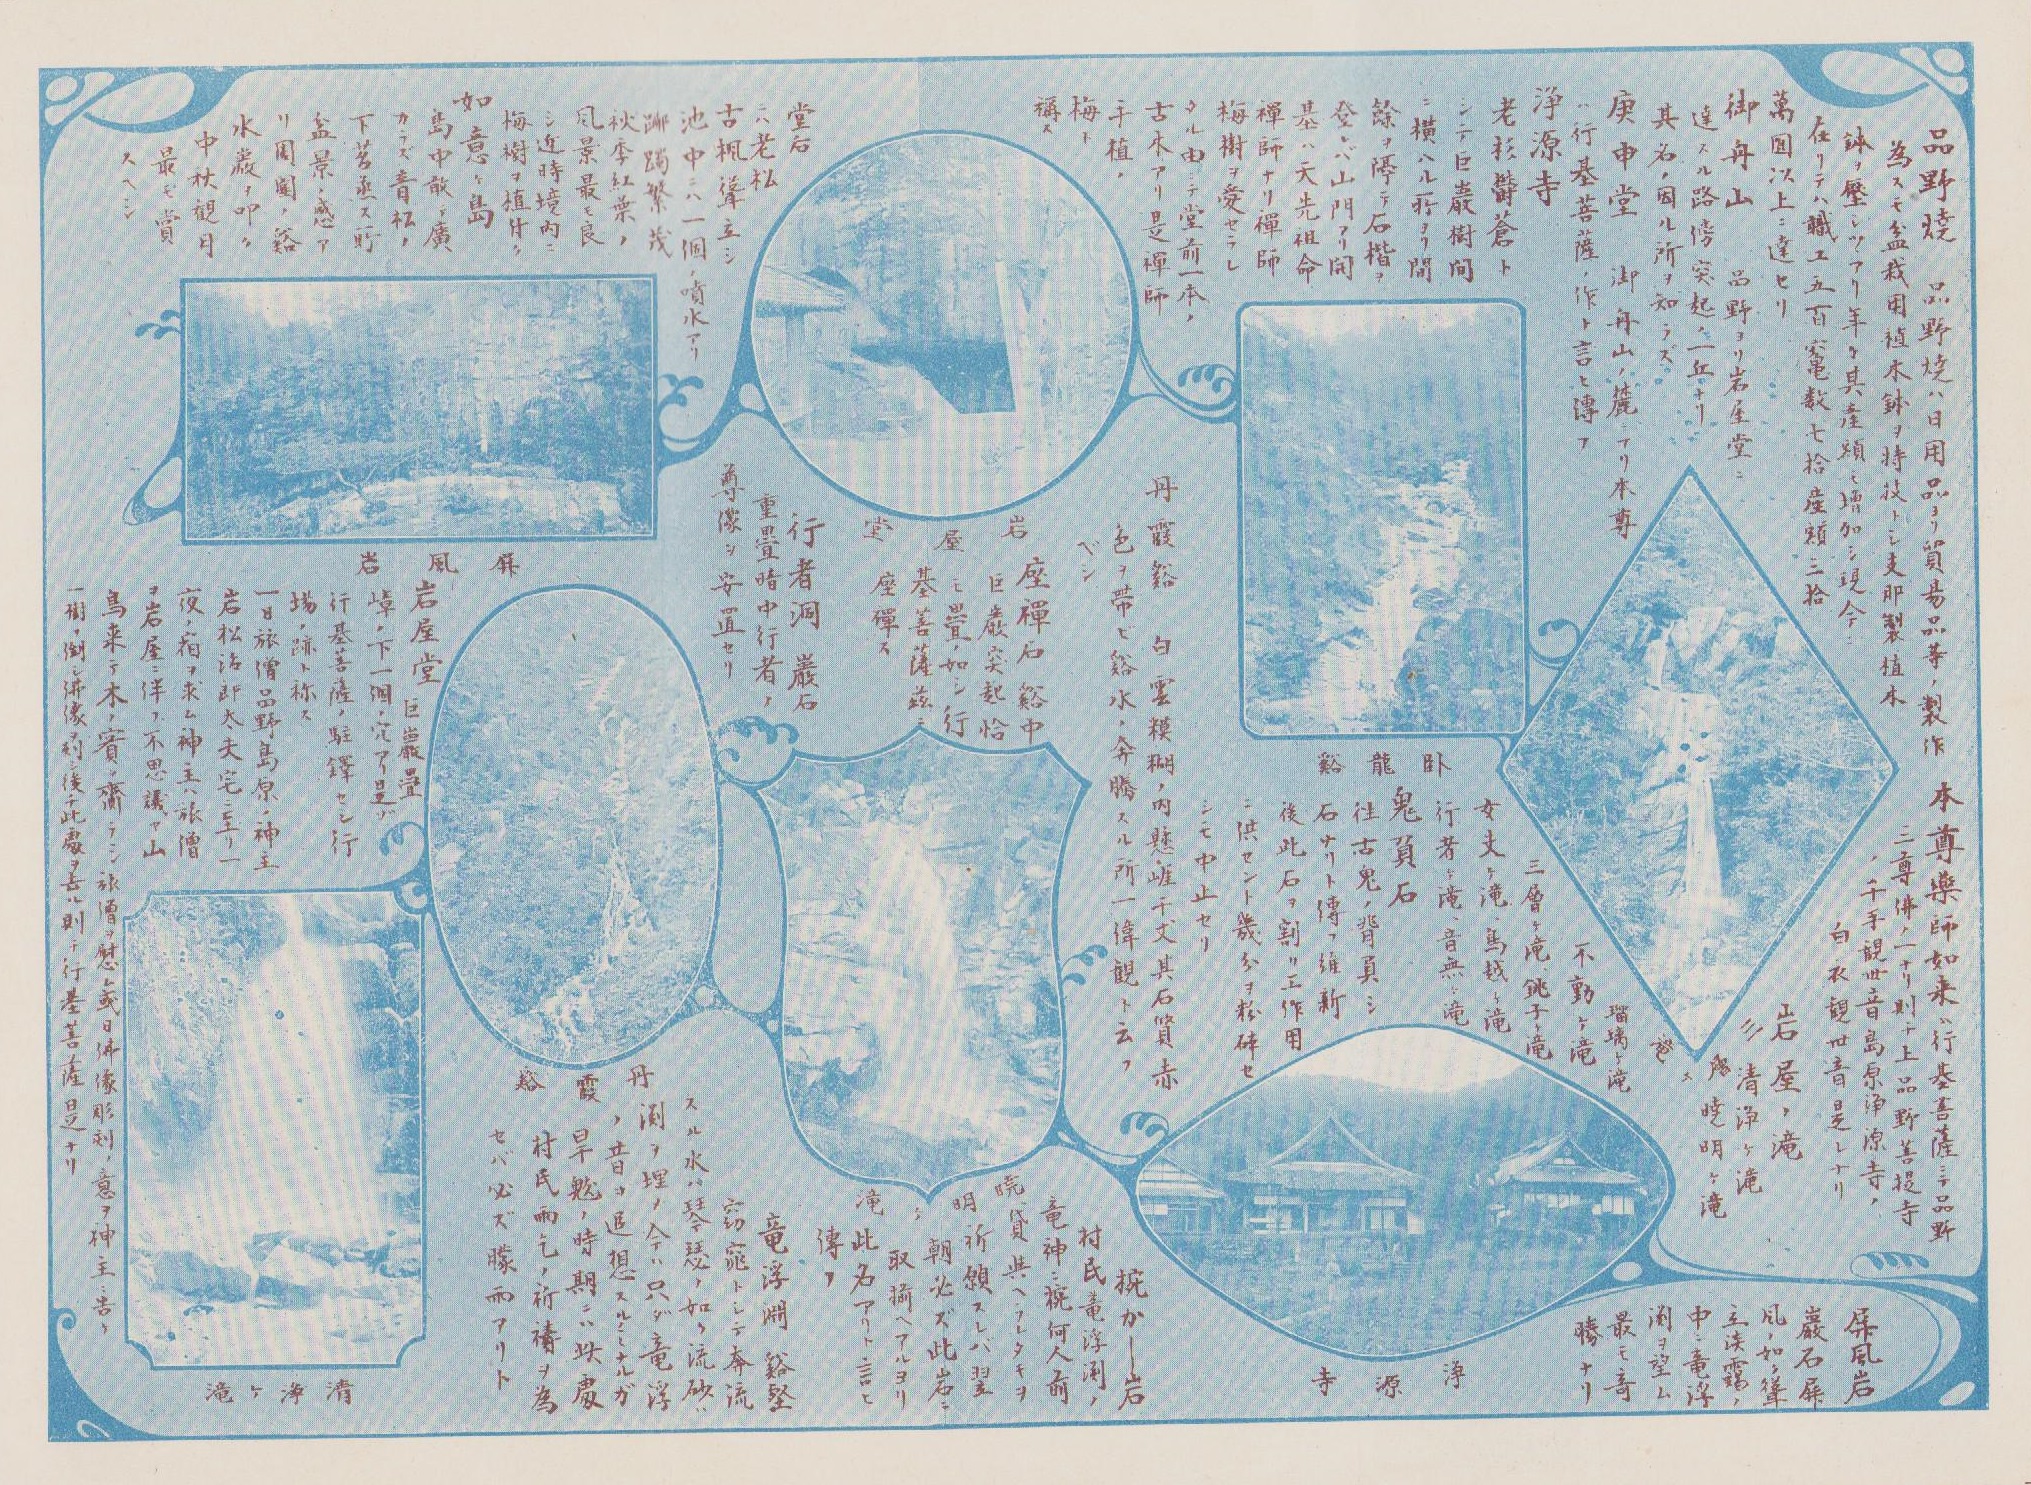 品野焼　品野焼ハ日用品ヨリ貿易品等ノ製作
為スモ盆栽用植木鉢ヲ特技トシ支那製植木
鉢ヲ壓シツヽアリ年々其産額モ増加シ現今ニ
在リテハ職工五百竃数七拾産額三拾
萬圓以上ニ達セリ
御舟山　品野ヨリ岩屋堂ニ
達スル路傍突起ノ一丘ナリ
其名ノ因ル所ヲ知ラズ
庚申堂　御舟山ノ麓ニアリ本尊
ハ行基菩薩ノ作ト言ヒ傳フ
浄源寺
老杉欝蒼ト
シテ巨巌樹間
ニ横ハル所ヨリ間
餘ヲ隔テ石楷ヲ
登レバ山門アリ開
基ハ天先祖命
禅師ナリ禅師
梅樹ヲ愛セラレ
タル由ニテ堂前一本ノ
古木アリ是禅師
手植ノ
梅ト
稱ス
堂石
ニハ老松
古楓聳立シ
池中ニハ一個ノ噴水アリ
躑躅繁茂
秋季紅葉ノ
風景最モ良
シ近時境内ニ
梅樹ヲ植付ク
如意ヶ島
島中敢テ廣
カラズ音松ノ
下苔蒸ス所
盆景ノ感ア
リ周圍ノ谿
水巌ヲ叩ク
中秋観月
最モ賞
スベシ
屏風岩
岩屋堂
臥龍谿
丹霞谿　白雲模糊ノ内懸崖千丈其石質赤
色ヲ帯ビ谿水ノ奔騰スル所一偉観ト云フ
ベシ
座禪石　谿中
巨巌突起恰
モ疊ノ如シ行
基菩薩茲ニ
座禪ス
行者洞　巌石
重疊暗中行者ノ
尊像ヲ安置セリ
岩屋堂　巨巌疊
嶂ノ下一個ノ穴アリ是ガ
行基菩薩ノ駐鐸セシ行
場ノ跡ト称ス
一日旅僧品野島原ノ神主
岩松治郎太夫宅ニ至リ一
夜ノ宿ヲ求ム神主ハ旅僧
ヲ岩屋ニ伴フ不思議ヤ山
鳥来テ木ノ實ヲ齎ラシ旅僧ヲ慰ム或日佛像彫刻ノ意ヲ神主ニ告ク
一樹ヲ倒シ佛像ヲ刻ミ後チ此處ヲ去ル則チ行基菩薩是ナリ
本尊藥師如来ハ行基菩薩ニテ品野
三尊佛ノ一ナリ則チ上品野菩提寺
ノ千手観世音島原浄源寺ノ
白衣観世音是レナリ
岩屋ノ滝
清浄ヶ滝
暁明ヶ滝
瑠璃ヶ滝
不動ヶ滝
三層ヶ滝、銚子ヶ滝
女丈ヶ滝、鳥越ヶ滝
行者ヶ滝、音無ヶ滝
鬼負石
往古鬼ノ背負シ
石ナリト傳フ維新
後此石ヲ割リ工作用
ニ供セント幾分ヲ粉砕セ
シモ中止セリ
屏風岩
巌石屏
風ノ如ク聳
立淡靄ノ
中ニ竜浮
渕ヲ望ム
最モ奇
勝ナリ
浄源寺
椀かし岩
村民竜浮渕ノ
竜神ニ椀何人前
貸與ヘラレタキヲ
祈願スレバ翌
朝必ズ此岩ニ
取揃ヘアルヨリ
此名アリト言ヒ
傳フ
暁明ヶ滝
竜浮渕　谿壑
窈窕トシテ奔流
スル水ハ琴瑟ノ如ク流砂ハ
渕ヲ埋メ今ハ只ダ竜浮
ノ昔ヲ追想スルノミナルガ
旱魃ノ時期ニハ此處
村民雨乞ノ祈禱ヲ為
セバ必ズ朦雨アリト
丹霞谿
清浄ヶ滝